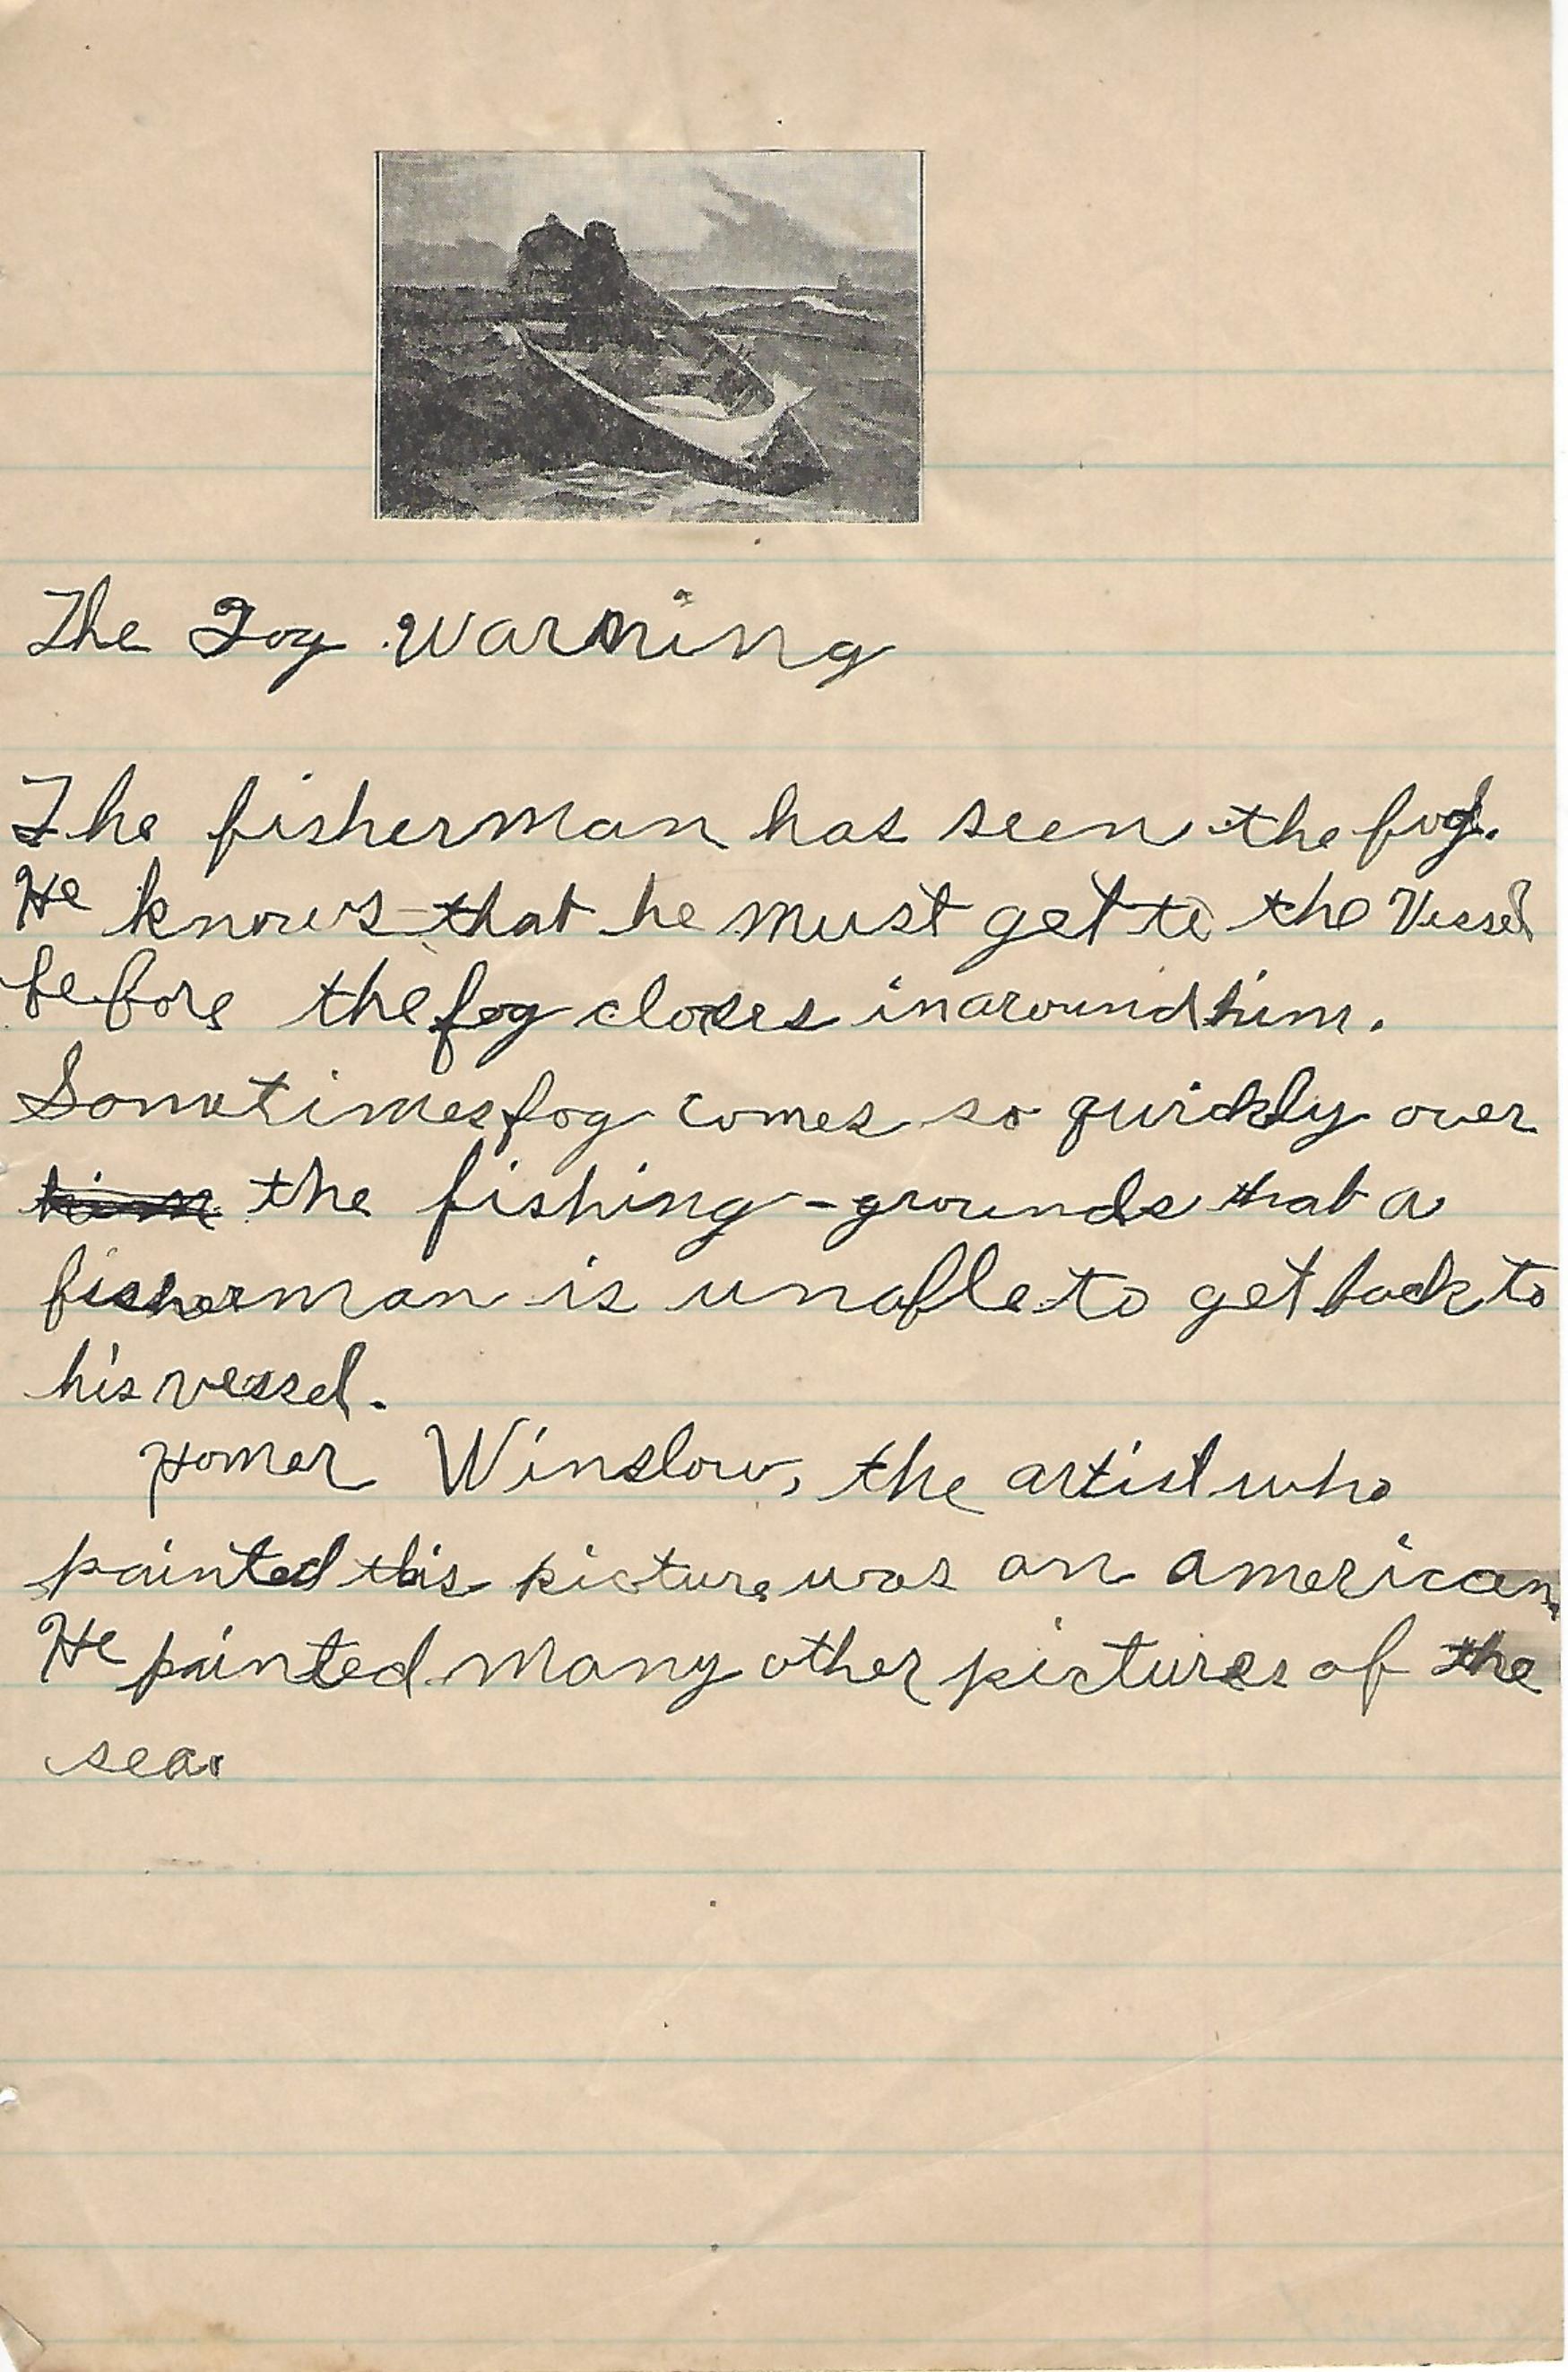 The Fog Warning
The fisherman has seen the fog.
He knows that he must get to the Vessel
before the fog closes in around him.
Sometimes fog comes so quickly over
him the fishing-grounds that a
fisherman is unable to get back to
his vessel.
Homer Winslow, the artist who
painted this picture was an american.
He painted many other pictures of the
sea.